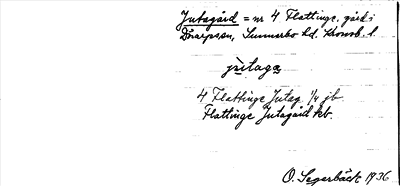 Jutagård = nr 4 Flattinge, gård i
Dörarpssn, Sunnerbo hd. Kronob. l
jùtaga
4 Flattinge Jutag. 1/4 jb
Flattinge Jutagård kb.
O. Segerbäck 1936